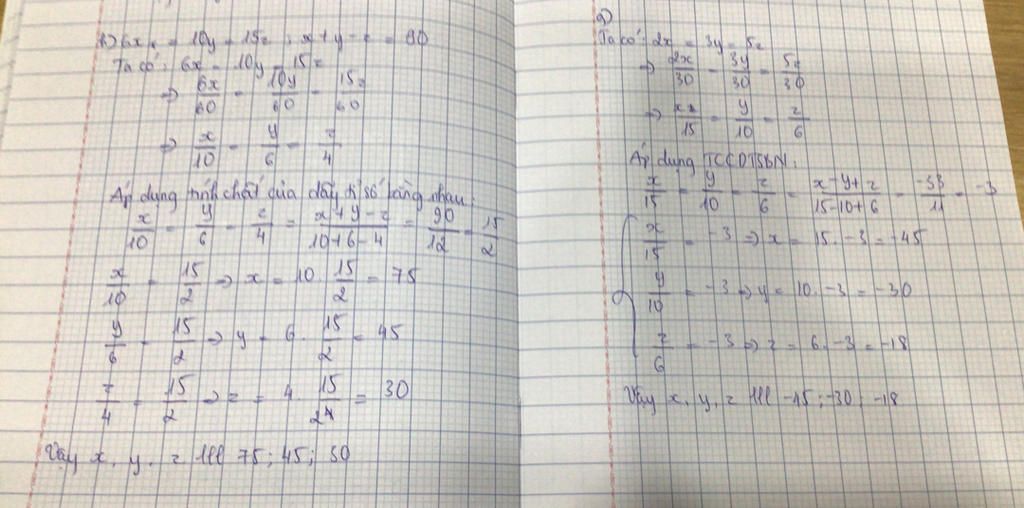 b) 6x = 10y = 15z ; x + y - z = 90
Ta có: 6x = 10y = 15z
⇒ 6x/60 = 10y/60 = 15z/60
⇒ x/10 = y/6 = z/4
Áp dụng tính chất của dãy tỉ số bằng nhau:
x/10 = y/6 = z/4 = (x + y - z)/(10 + 6 - 4) = 90/12 = 15/2
x/10 = 15/2 ⇒ x = 10 . 15/2 = 75
y/6 = 15/2 ⇒ y = 6 . 15/2 = 45
z/4 = 15/2 ⇒ z = 4 . 15/2 = 30
Vậy x, y, z lll 75; 45; 30
Ta có: 2x = 3y = 5z
⇒ 2x/30 = 3y/30 = 5z/30
⇒ x/15 = y/10 = z/6
Áp dụng TCCDTSBN:
x/15 = y/10 = z/6 = (x - y + z)/(15 - 10 + 6) = -33/11 = -3
x/15 = -3 ⇒ x = 15 . -3 = -45
y/10 = -3 ⇒ y = 10 . -3 = -30
z/6 = -3 ⇒ z = 6 . -3 = -18
Vậy x, y, z lll -45; -30; -18